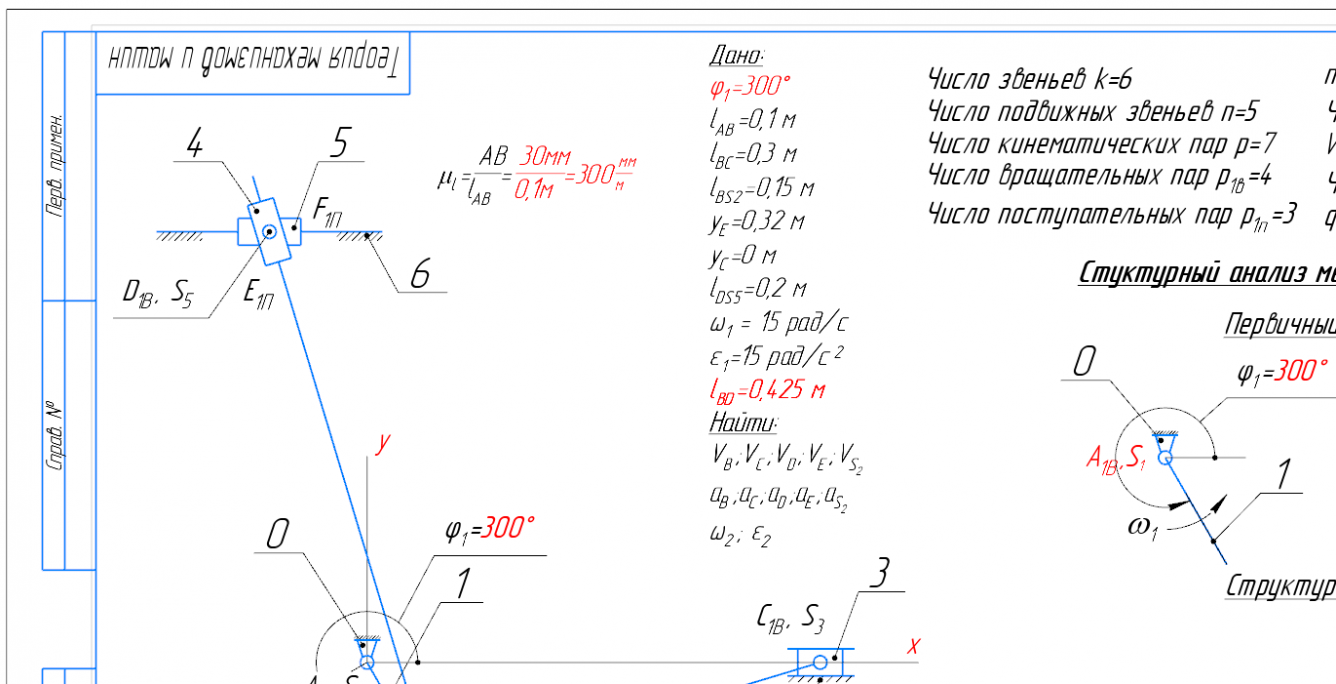 Теория механизмов и машин
Перв. примен.
Справ. №
4
5
6
F₁П
D₁В, S₅
E₁П
μₗ=AB/l_AB=30мм/0,1м=300 мм/м
y
φ₁=300°
0
1
3
C₁В, S₃
x
Дано:
φ₁=300°
l_AB=0,1 м
l_BC=0,3 м
l_BS2=0,15 м
y_E=0,32 м
y_C=0 м
l_DS5=0,2 м
ω₁ = 15 рад/с
ε₁=15 рад/с²
l_BD=0,425 м
Найти:
V_B; V_C; V_D; V_E; V_S₂
a_B; a_C; a_D; a_E; a_S₂
ω₂; ε₂
Число звеньев k=6
Число подвижных звеньев n=5
Число кинематических пар p=7
Число вращательных пар p₁в=4
Число поступательных пар p₁п=3
Стуктурный анализ ме
Первичный
0
φ₁=300°
A₁В, S₁
1
ω₁
Структур